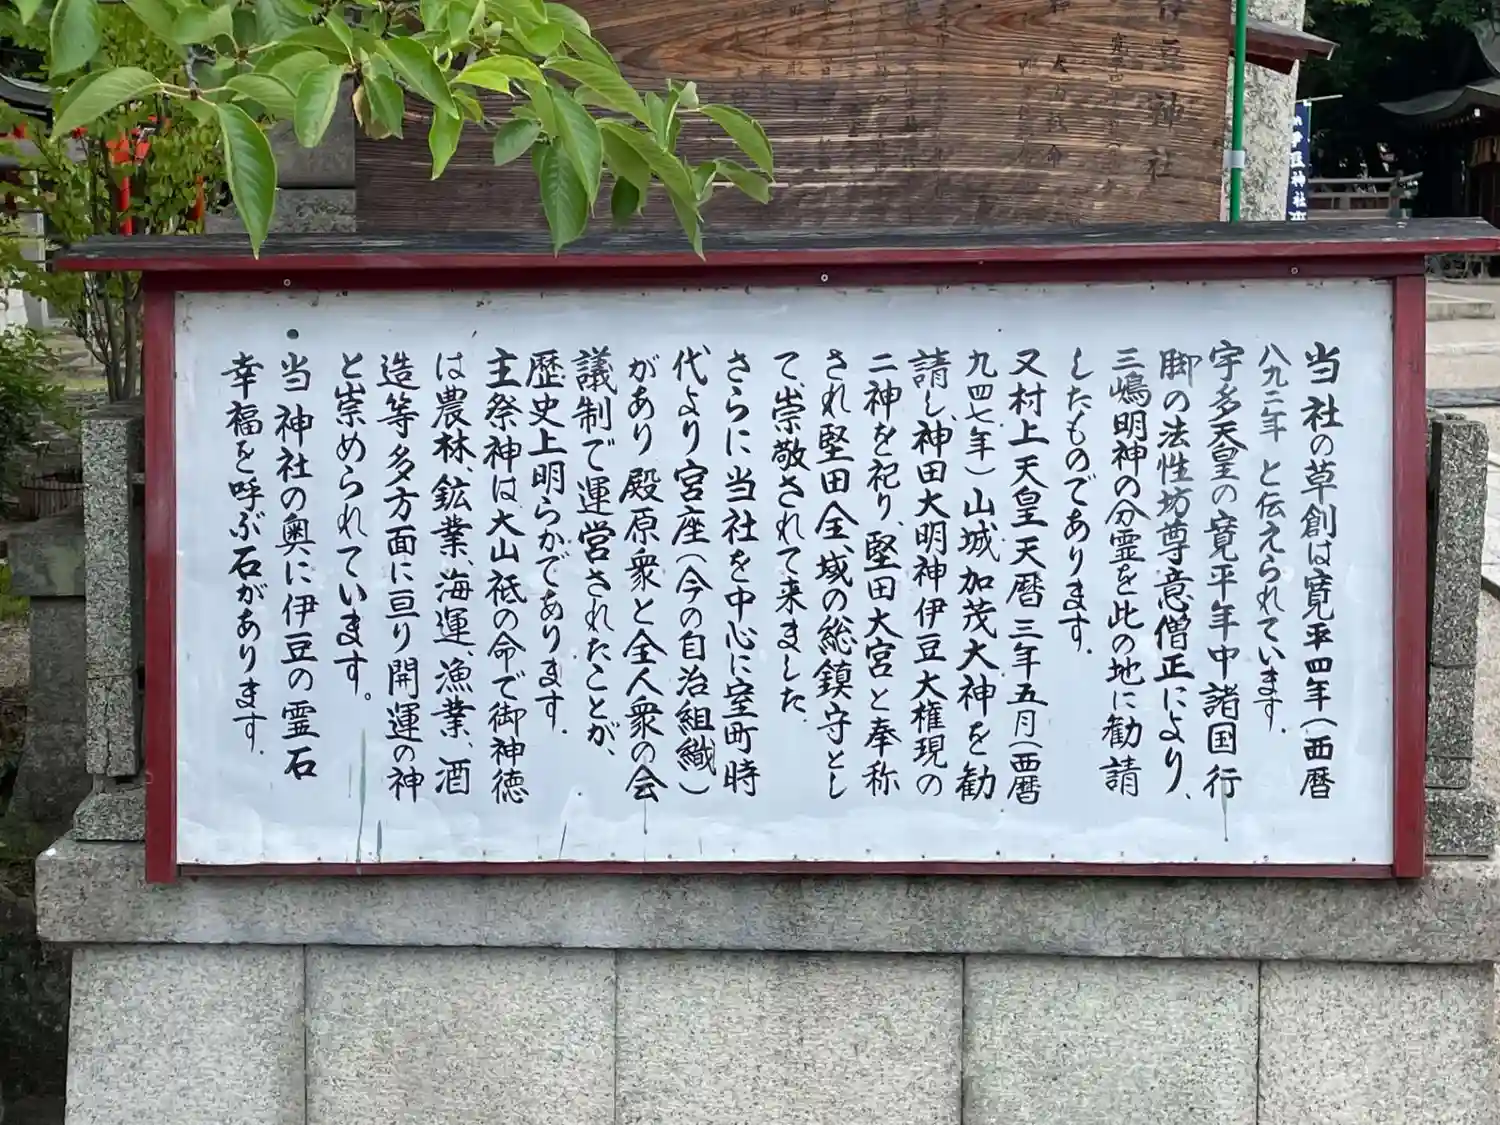 神社
豆神社
当社の草創は寛平四年(西暦
八九二年 と伝えられています.
宇多天皇の寛平年中諸国行
脚の法性坊尊意僧正により、
三嶋明神の分霊を此の地に勧請
したものであります.
又村上天皇天暦三年五月(西暦
九四七年)山城加茂大神を勧
請し、神田大明神伊豆大権現の
二神を祀り、堅田大宮と奉称
され堅田全域の総鎮守とし
て、崇敬されて来ました.
さらに当社を中心に室町時
代より宮座(今の自治組織)
があり殿原衆と全人衆の会
議制で運営されたことが、
歴史上明らかであります.
主祭神は、大山祇の命で御神徳
は農林、鉱業、海運、漁業、酒
造等多方面に亘り開運の神
と崇められています。
当神社の奥に伊豆の霊石
幸福を呼ぶ石があります.